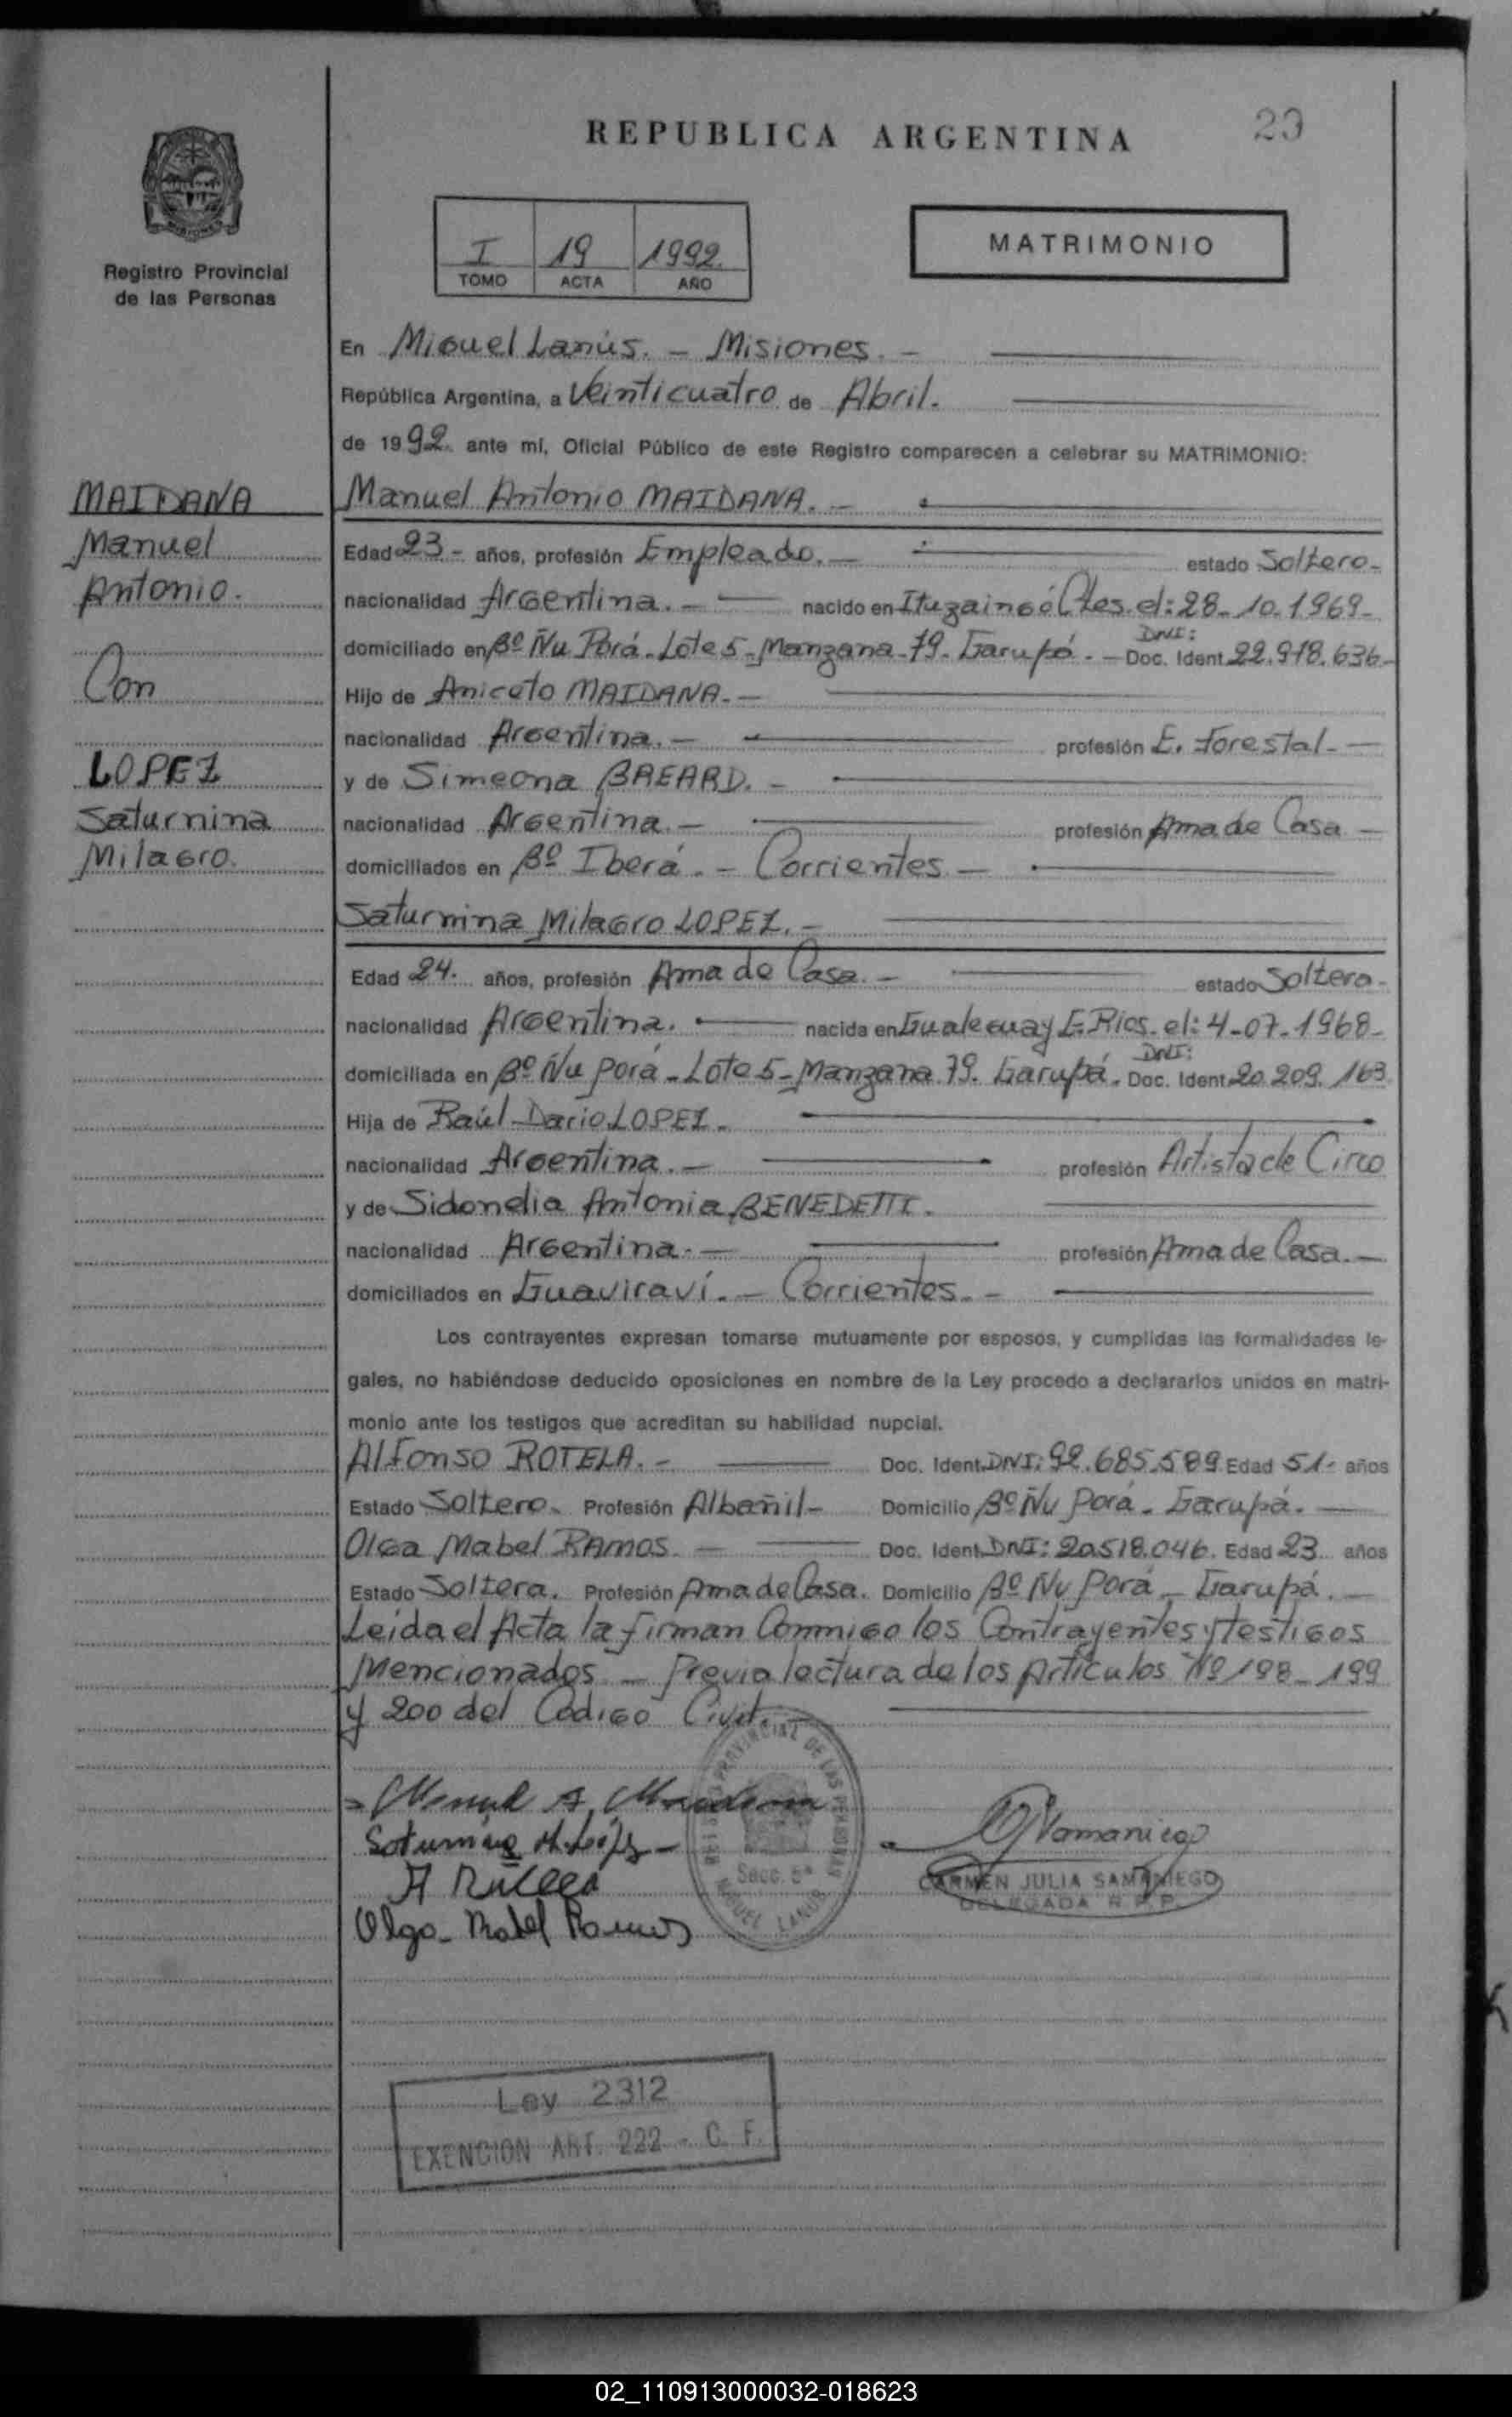 REPUBLICA ARGENTINA
23
Registro Provincial
de las Personas
I 19 1992
TOMO ACTA AÑO
MATRIMONIO
En Miguel Lanús. - Misiones. -
República Argentina, a Veinticuatro de Abril.
de 1992. ante mí, Oficial Público de este Registro comparecen a celebrar su MATRIMONIO:
MAIDANA
Manuel
Antonio.
Con
LOPEZ
Saturnina
Milagro.
Manuel Antonio MAIDANA. -
Edad 23- años, profesión Empleado. - estado Soltero-
nacionalidad Argentina. - nacido en Ituzaingó Ctes. el: 28-10-1969-
domiciliado en Bº Ñu Porá-Lote 5-Manzana-79-Garupá. - Doc. Ident. DNI: 22.918.636-
Hijo de Aniceto MAIDANA. -
nacionalidad Argentina. - profesión E. Forestal. -
y de Simeona BREARD. -
nacionalidad Argentina. - profesión Ama de Casa -
domiciliados en Bº Iberá. - Corrientes -
Saturnina Milagro LOPEZ. -
Edad 24. años, profesión Ama de Casa. - estado Soltera-
nacionalidad Argentina. nacida en Gualeguay E. Rios. el: 4-07-1968-
domiciliada en Bº Ñu Porá-Lote 5-Manzana 79. Garupá. Doc. Ident. DNI: 20.209.163
Hija de Raúl Dario LOPEZ.
nacionalidad Argentina. - profesión Artista de Circo
y de Sidondia Antonia BENEDETTI.
nacionalidad Argentina. - profesión Ama de Casa. -
domiciliados en Guaviraví. - Corrientes. -
Los contrayentes expresan tomarse mutuamente por esposos, y cumplidas las formalidades le-
gales, no habiéndose deducido oposiciones en nombre de la Ley procedo a declararlos unidos en matri-
monio ante los testigos que acreditan su habilidad nupcial.
Alfonso ROTELA. - Doc. Ident. DNI: 92.685.589 Edad 51- años
Estado Soltero- Profesión Albañil- Domicilio Bº Ñu Porá - Garupá. -
Olga Mabel RAMOS. - Doc. Ident. DNI: 20518.046. Edad 23 años
Estado Soltera. Profesión Ama de Casa. Domicilio Bº Ñu Porá - Garupá. -
Leída el Acta la firman Conmigo los Contrayentes y testigos
Mencionados - Previa lectura de los Artículos Nº 198-199
y 200 del Código Civil.
Manuel A. Maidana
Saturnina M. López
A Rotela
Olga Mabel Ramos
REGISTRO PROVINCIAL DE LAS PERSONAS
Secc. 5ª
MIGUEL LANUS
CJSamaniego
CARMEN JULIA SAMANIEGO
DELEGADA R.P.P.
Ley 2312
EXENCION ART. 222 - C. F.
02_110913000032-018623